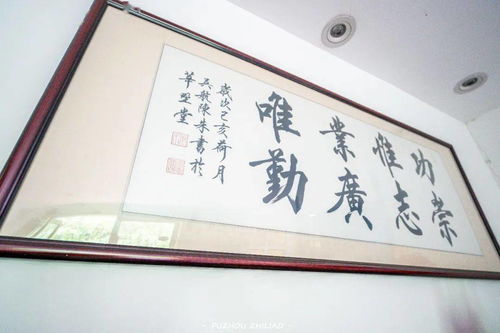 功崇
惟志
業廣
唯勤
歲次己亥荷月
陳朱書於
華堂
~ FUZHOU ZHILIAO ~